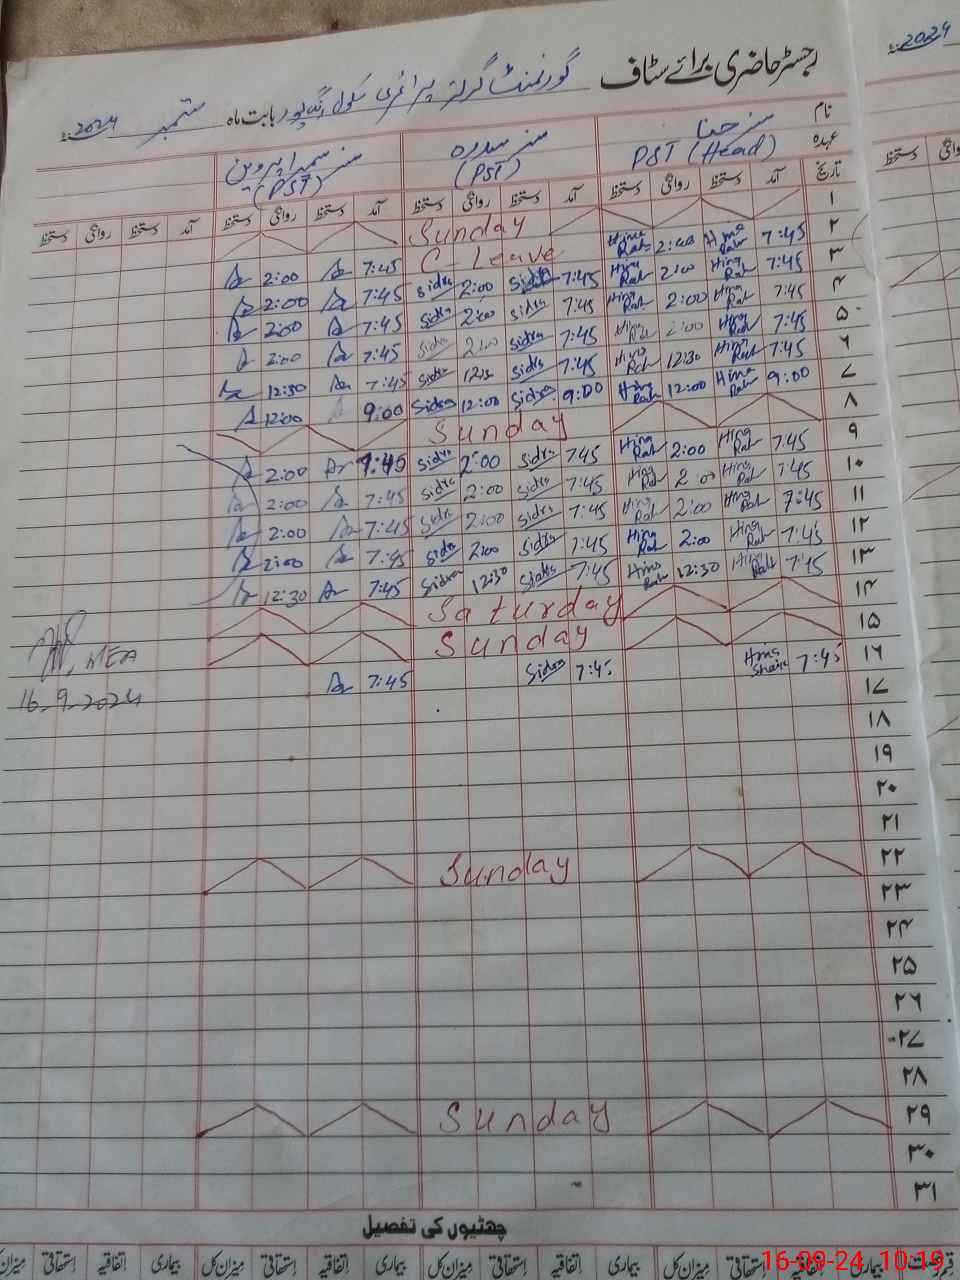 2024
رجسٹر حاضری برائے سٹاف گورنمنٹ گرلز پرائمری سکول بابت ماہ ستمبر 2024
نام مسز حنا مسز سدرہ مسز سمیرا پروین
عہدہ PST (Head) (PST) (PST)
تاریخ آمد دستخط روانگی دستخط آمد دستخط روانگی دستخط آمد دستخط روانگی دستخط آمد دستخط روانگی دستخط
۱ Sunday
۲ 7:45 Hina Rah 2:00 Hina Rah C-Leave 7:45 2:00
۳ 7:45 Hina Rah 2:00 Hina Rah 7:45 Sidra 2:00 Sidra 7:45 2:00
۴ 7:45 Hina Rah 2:00 Hina Rah 7:45 Sidra 2:00 Sidra 7:45 2:00
۵ 7:45 Hina Rah 2:00 Hina Rah 7:45 Sidra 2:00 Sidra 7:45 2:00
۶ 7:45 Hina Rah 12:30 Hina Rah 7:45 Sidra 12:30 Sidra 7:45 12:30
۷ 9:00 Hina Rah 12:00 Hina Rah 9:00 Sidra 12:00 Sidra 9:00 12:00
۸ Sunday
۹ 7:45 Hina Rah 2:00 Hina Rah 7:45 Sidra 2:00 Sidra 7:45 2:00
۱۰ 7:45 Hina Rah 2:00 Hina Rah 7:45 Sidra 2:00 Sidra 7:45 2:00
۱۱ 7:45 Hina Rah 2:00 Hina Rah 7:45 Sidra 2:00 Sidra 7:45 2:00
۱۲ 7:45 Hina Rah 2:00 Hina Rah 7:45 Sidra 2:00 Sidra 7:45 2:00
۱۳ 7:45 Hina Rah 12:30 Hina Rah 7:45 Sidra 12:30 Sidra 7:45 12:30
۱۴ Saturday
۱۵ Sunday
۱۶ 7:45 7:45 Sidra 7:45
MEA
16-9-2024
۱۷
۱۸
۱۹
۲۰
۲۱
۲۲ Sunday
۲۳
۲۴
۲۵
۲۶
۲۷
۲۸
۲۹ Sunday
۳۰
۳۱
چھٹیوں کی تفصیل
بیماری اتفاقیہ استحقاقی میزان کل بیماری اتفاقیہ استحقاقی میزان کل بیماری اتفاقیہ استحقاقی میزان کل بیماری اتفاقیہ استحقاقی میزان کل
16-09-24, 10:19